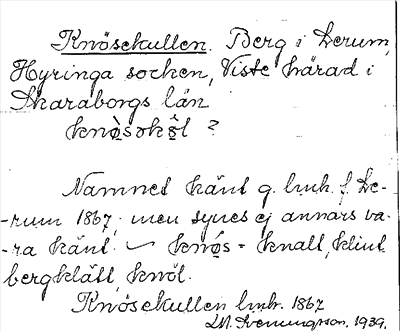 Knösekullen. Berg i Lerum,
Hyringa socken, Viste härad i
Skaraborgs län
knø̀sək`ø̂l ?
Namnet känt g. lmk. f. Le-
-rum 1867, men synes ej annars va-
-ra känt. – knös = knall, klint
bergklätt, knöl.
Knösekullen lmk. 1867
1939.